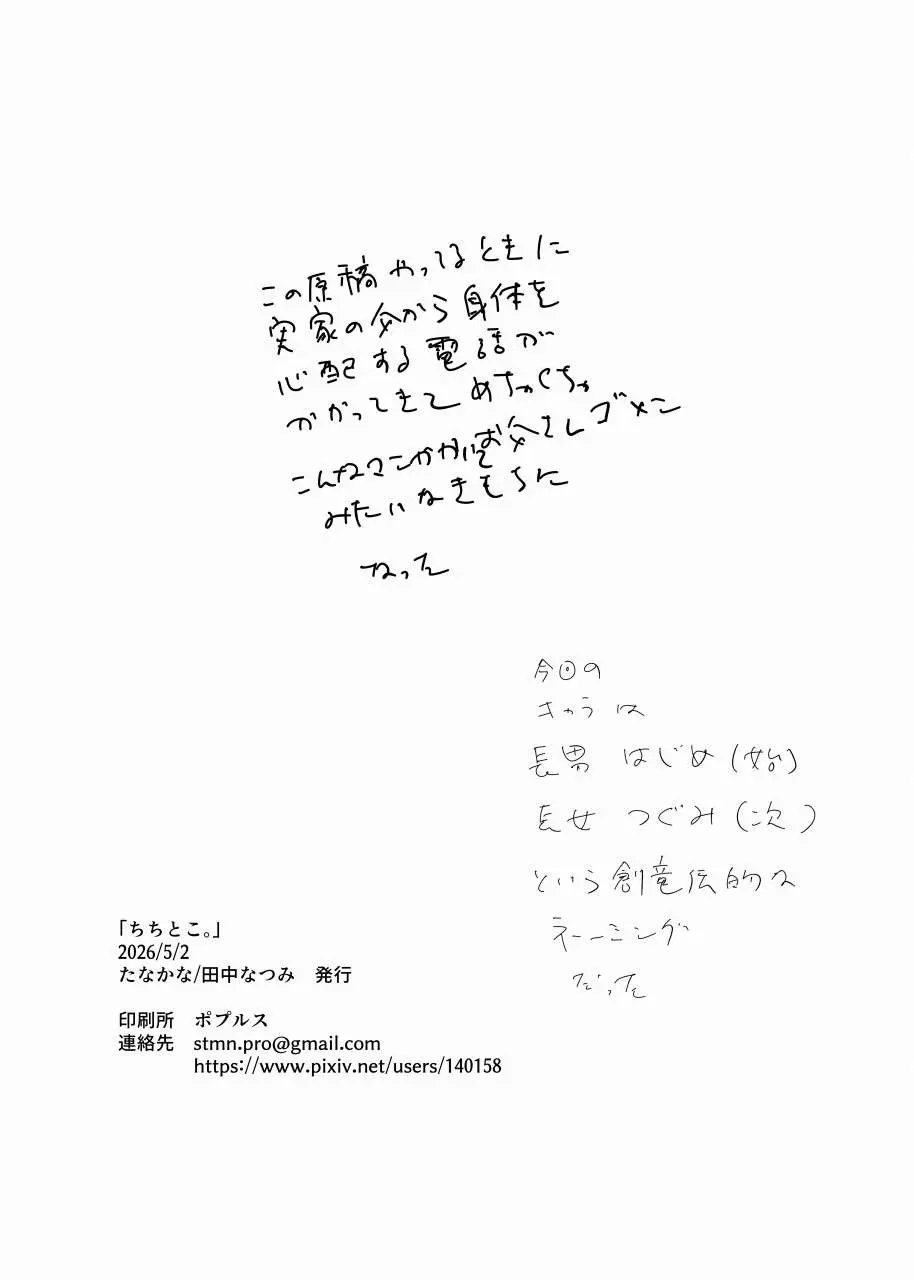 この原稿やってるときに
実家の父から身体を
心配する電話が
かかってきてめちゃくちゃ
こんなマンガかいてお父さんゴメン
みたいなきもちに
なった
今回の
キャラは
長男 はじめ(始)
長女 つぐみ(次)
という創竜伝的な
ネーミング
だった
「ちちとこ。」
2026/5/2
たなかな/田中なつみ 発行
印刷所 ポプルス
連絡先 stmn.pro@gmail.com
https://www.pixiv.net/users/140158